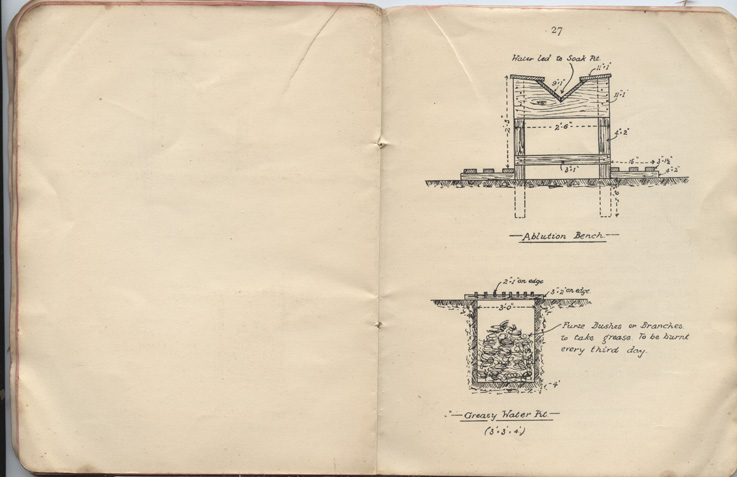 27
Water led to Soak Pit.
11"×1"
9"×1"
11"×1"
2'-6"
4"×2"
3"×1"
15"
3"×1½"
4"×2"
Ablution Bench.
2"×1" on edge
3"×2" on edge.
3'-0"
Furse Bushes or Branches
to take grease. To be burnt
every third day.
Greasy Water Pit.
(3'×3'×4')